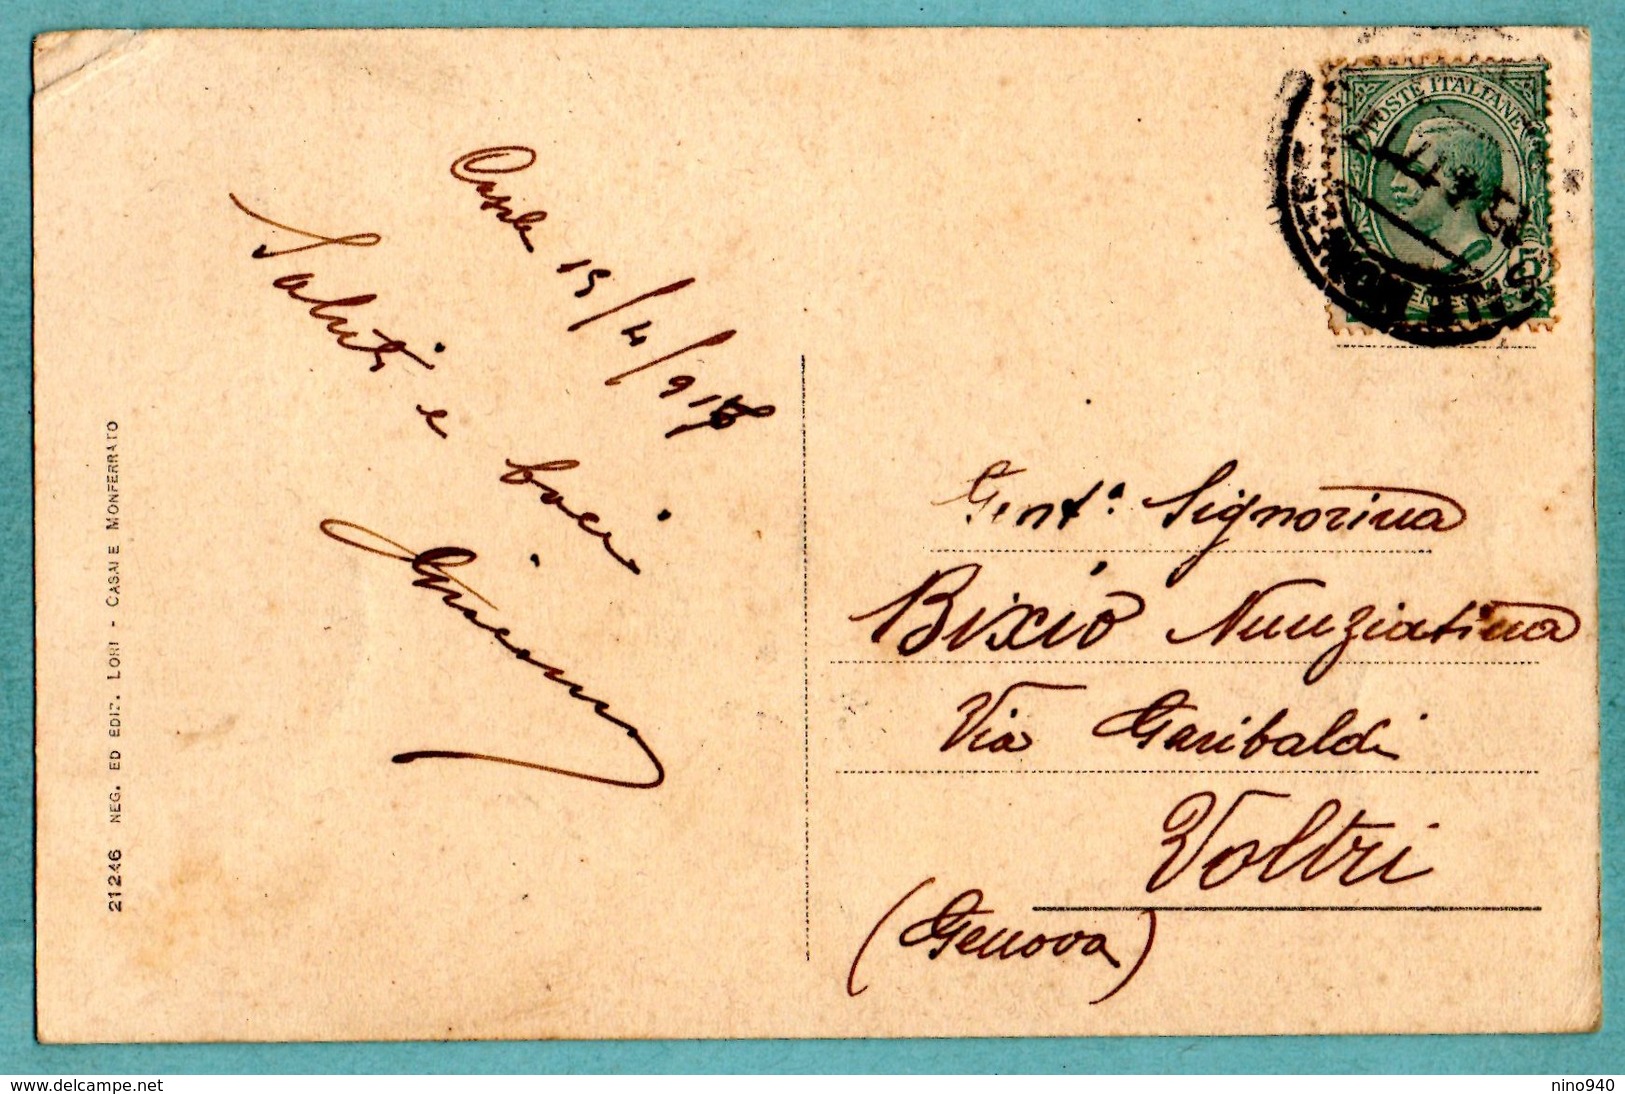 Casale 15/4/917
Saluti e baci
Giacomo
21246 NEG. ED EDIZ. LORI - CASALE MONFERRATO
POSTE ITALIANE
15 4 17
Gent.a Signorina
Bixio Nunziatina
Via Garibaldi
Voltri
(Genova)
www.delcampe.net
nino940